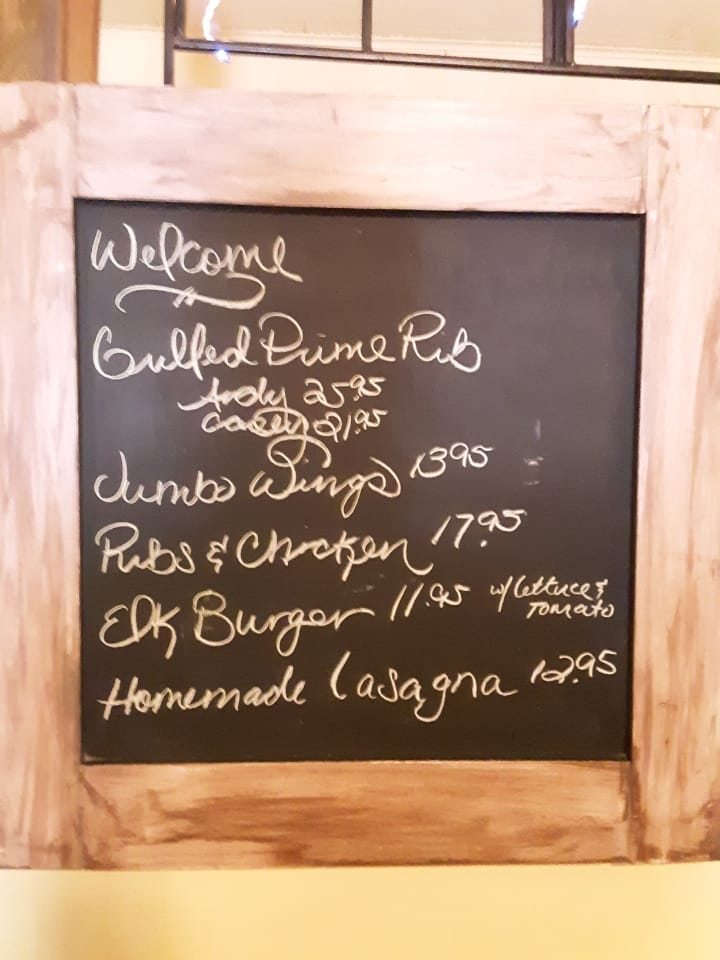 Welcome
Grilled Prime Rib
Andy 25.95
Casey 21.95
Jumbo Wings 13.95
Ribs & Chicken 17.95
Elk Burger 11.95 w/ lettuce &
Tomato
Homemade Lasagna 12.95